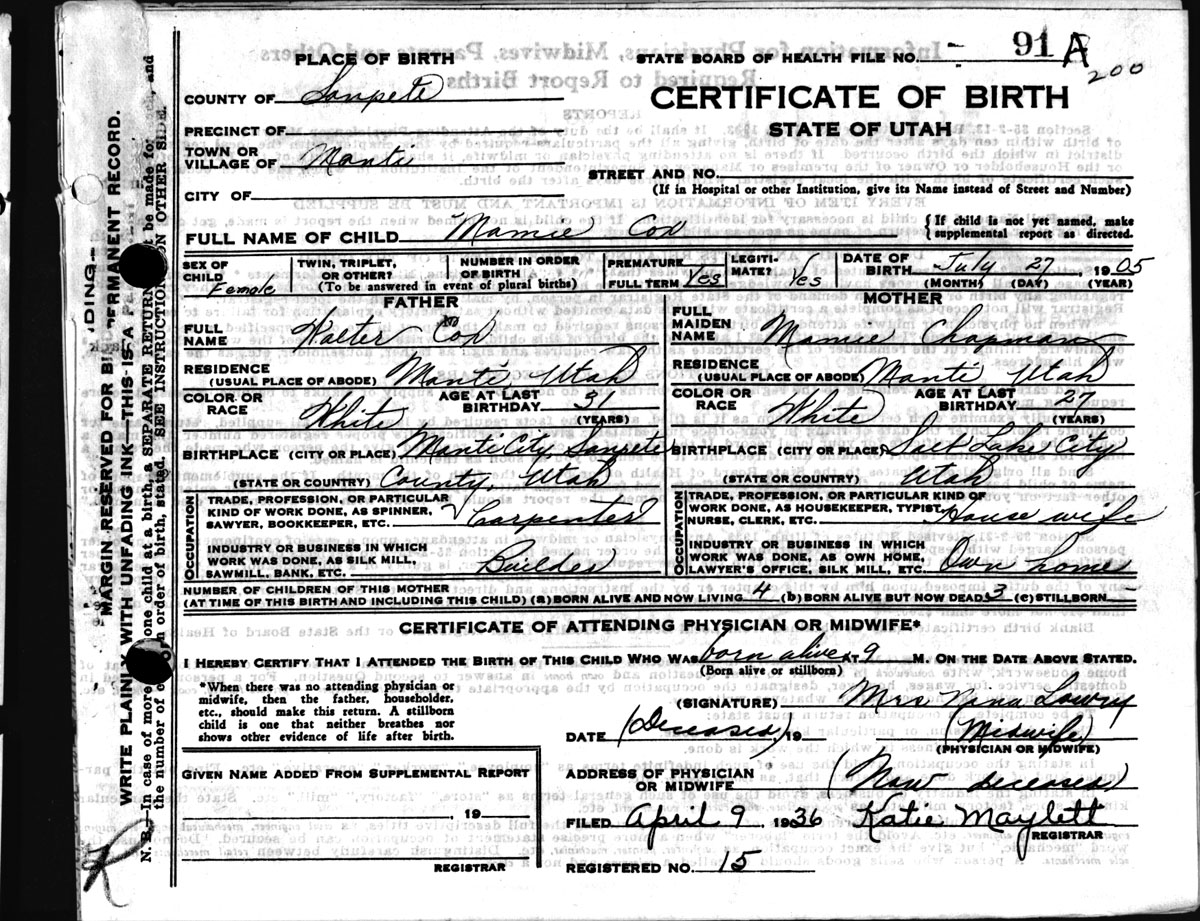 91 A
200
PLACE OF BIRTH
STATE BOARD OF HEALTH FILE NO.
COUNTY OF Sanpete
CERTIFICATE OF BIRTH
PRECINCT OF
STATE OF UTAH
TOWN OR VILLAGE OF Manti
STREET AND NO.
(If in Hospital or other Institution, give its Name instead of Street and Number)
CITY OF
FULL NAME OF CHILD Mamie Cox
{ If child is not yet named, make
{ supplemental report as directed.
SEX OF CHILD Female
TWIN, TRIPLET, OR OTHER?
NUMBER IN ORDER OF BIRTH
(To be answered in event of plural births)
PREMATURE
FULL TERM Yes
LEGITI-MATE? Yes
DATE OF BIRTH July 27, 1905
(MONTH) (DAY) (YEAR)
FATHER
FULL NAME Walter Cox
RESIDENCE (USUAL PLACE OF ABODE) Manti Utah
COLOR OR RACE White
AGE AT LAST BIRTHDAY 31 (YEARS)
BIRTHPLACE (CITY OR PLACE) Manti City, Sanpete
(STATE OR COUNTRY) County, Utah
OCCUPATION
TRADE, PROFESSION, OR PARTICULAR KIND OF WORK DONE, AS SPINNER, SAWYER, BOOKKEEPER, ETC. Carpenter
INDUSTRY OR BUSINESS IN WHICH WORK WAS DONE, AS SILK MILL, SAWMILL, BANK, ETC. Builder
MOTHER
FULL MAIDEN NAME Mamie Chapman
RESIDENCE (USUAL PLACE OF ABODE) Manti Utah
COLOR OR RACE White
AGE AT LAST BIRTHDAY 27 (YEARS)
BIRTHPLACE (CITY OR PLACE) Salt Lake City
(STATE OR COUNTRY) Utah
OCCUPATION
TRADE, PROFESSION, OR PARTICULAR KIND OF WORK DONE, AS HOUSEKEEPER, TYPIST, NURSE, CLERK, ETC. House wife
INDUSTRY OR BUSINESS IN WHICH WORK WAS DONE, AS OWN HOME, LAWYER'S OFFICE, SILK MILL, ETC. Own home
NUMBER OF CHILDREN OF THIS MOTHER
(AT TIME OF THIS BIRTH AND INCLUDING THIS CHILD) (a) BORN ALIVE AND NOW LIVING 4 (b) BORN ALIVE BUT NOW DEAD 3 (c) STILLBORN –
CERTIFICATE OF ATTENDING PHYSICIAN OR MIDWIFE*
I HEREBY CERTIFY THAT I ATTENDED THE BIRTH OF THIS CHILD WHO WAS born alive AT 9 M. ON THE DATE ABOVE STATED.
(Born alive or stillborn)
*When there was no attending physician or
midwife, then the father, householder,
etc., should make this return. A stillborn
child is one that neither breathes nor
shows other evidence of life after birth.
(SIGNATURE) Mrs Nana Lowry
DATE (Deceased) 19 (Midwife)
(PHYSICIAN OR MIDWIFE)
GIVEN NAME ADDED FROM SUPPLEMENTAL REPORT
19
REGISTRAR
ADDRESS OF PHYSICIAN OR MIDWIFE (Now deceased)
FILED April 9 1936 Katie Maylett
REGISTRAR
REGISTERED NO. 15
MARGIN RESERVED FOR BINDING—
WRITE PLAINLY WITH UNFADING INK—THIS IS A PERMANENT RECORD.
N. B.—In case of more one child at a birth, a SEPARATE RETURN be made for and
the number of order of birth, stated. SEE INSTRUCTION ON OTHER SIDE.